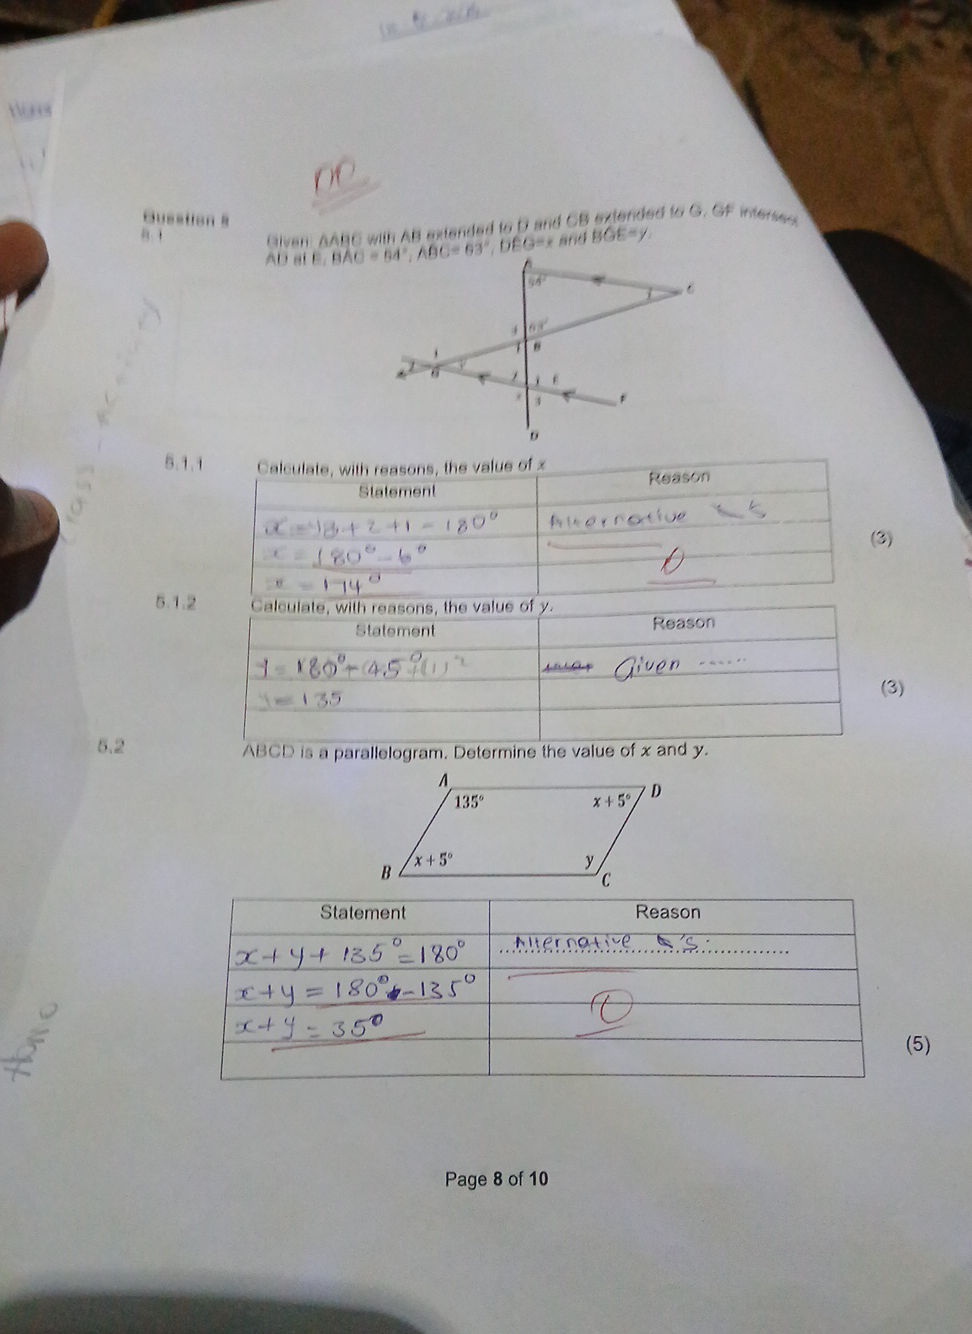 Question 5
5.1
Given: ΔABC with AB extended to D and CB extended to G. GF intersect
AD at E, BAC = 54°, ABC= 63°, DEG=x and BGE=y.
A
54°
C
63°
B
G
E
F
D
5.1.1
Calculate, with reasons, the value of x
Statement Reason
Alternative
x = 180° - 6°
x = 174°
(3)
5.1.2
Calculate, with reasons, the value of y.
Statement Reason
Given ......
y = 135
(3)
5.2
ABCD is a parallelogram. Determine the value of x and y.
A D
135° x + 5°
x + 5° y
B C
Statement Reason
x + y + 135° = 180° Alternative ∠'s
x + y = 180° - 135°
x + y = 35°
(5)
Home
Page 8 of 10